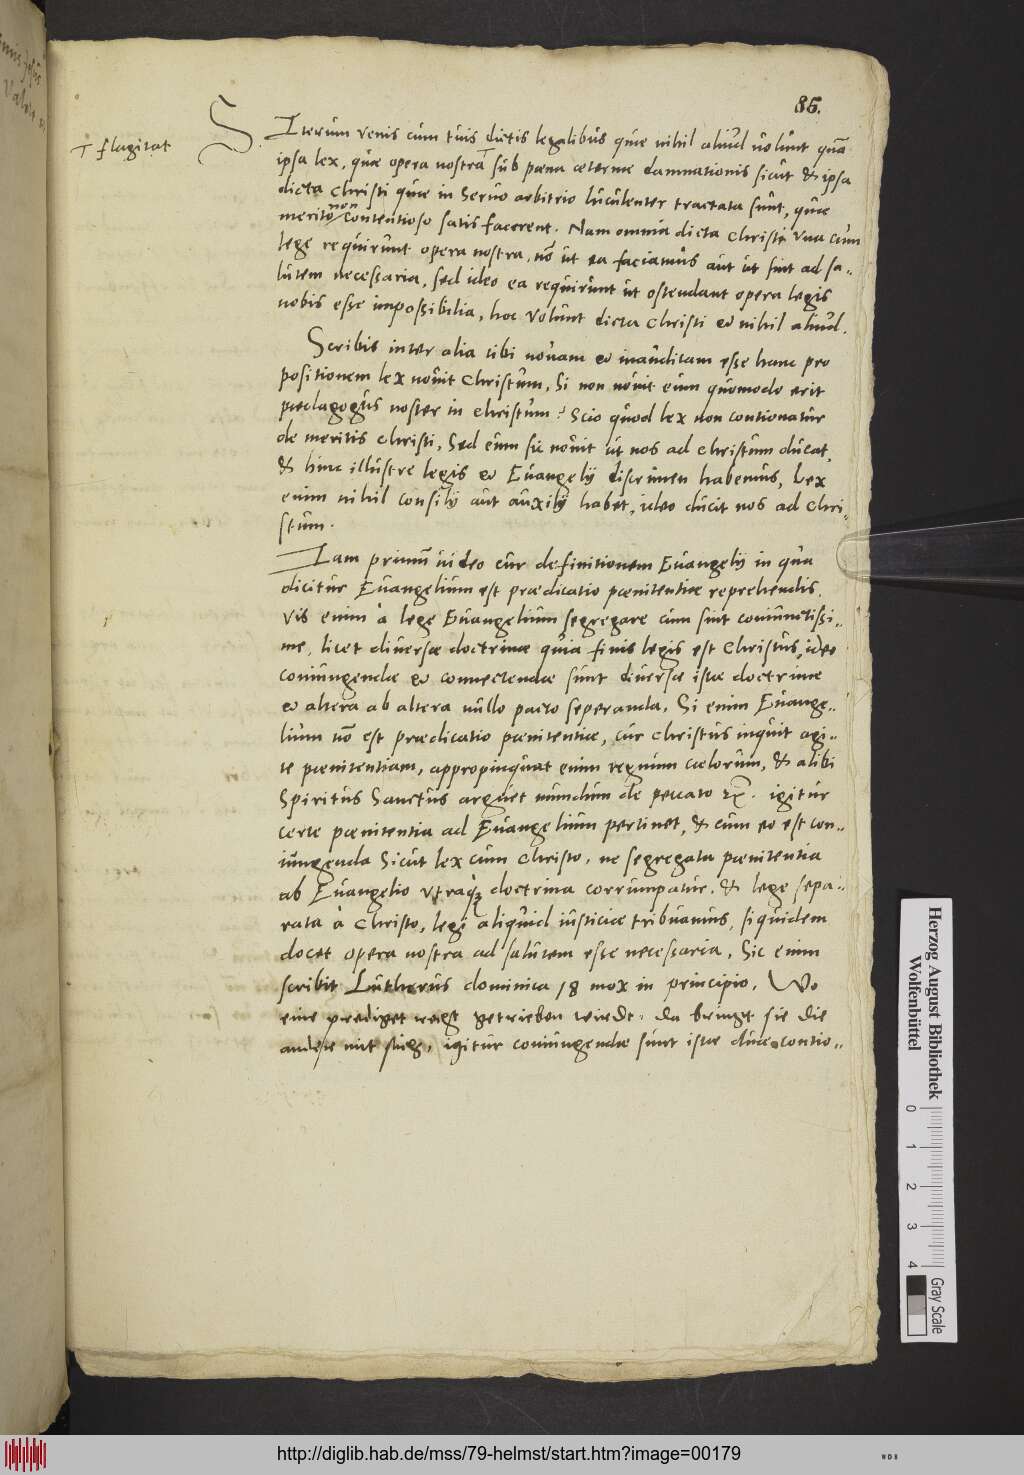 86.
S.
Iterum venis cum tuis dictis legalibus quae nihil aliud volunt quã
ipsa lex, quae opera nostra ꚍ sub poena aeternae damnationis sicut & ipsa
ꚍ flagitat
dicta Christi quae in servo arbitrio luculenter tractata sunt, quae
merito non contentioso satis facerent. Nam omnia dicta Christi una cum
lege requirunt opera nostra, nõ ut ea faciamus aut ut sint ad sa-
lutem necessaria, sed ideo ea requirunt ut ostendant opera legis
nobis esse impossibilia, hoc volunt dicta Christi et nihil aliud.
Scribis inter alia tibi novam et inauditam esse hanc pro
positionem lex novit Christum, Si non novit eum quomodo erit
paedagogus noster in Christum? Scio quod lex non contionatur
de meritis Christi, Sed eum sic novit ut nos ad Christum ducat,
& hinc illustre legis et Evangelij discrimen habemus, Lex
enim nihil consilij aut auxilij habet, ideo ducit nos ad Chri-
stum.
Iam primũ video cur definitionem Evangelij in qua
dicitur Evangelium est praedicatio poenitentiae reprehendis.
vis enim à lege Evangelium segregare cum sint coniunctissi-
me, licet diversae doctrinae quia finis legis est Christus, ideo
coniungendae et connectendae sunt diversae istae doctrinae
et altera ab altera nullo pacto seperanda, Si enim Evange-
lium nõ est praedicatio poenitentiae, cur Christus inquit agi-
te poenitentiam, appropinquat enim regnum coelorum, & alibi
Spiritus Sanctus arguet mundum de peccato &c. igitur
certe poenitentia ad Evangelium pertinet, & cum eo est con-
iungenda Sicut lex cum Christo, ne segregata poenitentia
ab Evangelio utraq; doctrina corrumpatur. & lege sepa-
rata à Christo, legi aliquid iusticiae tribuamus, siquidem
docet opera nostra ad salutem esse necessaria, Sic enim
scribit Lutherus dominica 18 mox in principio, Wo
eine prediget recht getrieben wirdt, da bringt sie die
andere mit sich, igitur coniungendae sunt istae duae contio-
Herzog August Bibliothek
Wolfenbüttel
0 1 2 3 4
Gray Scale
http://diglib.hab.de/mss/79-helmst/start.htm?image=00179